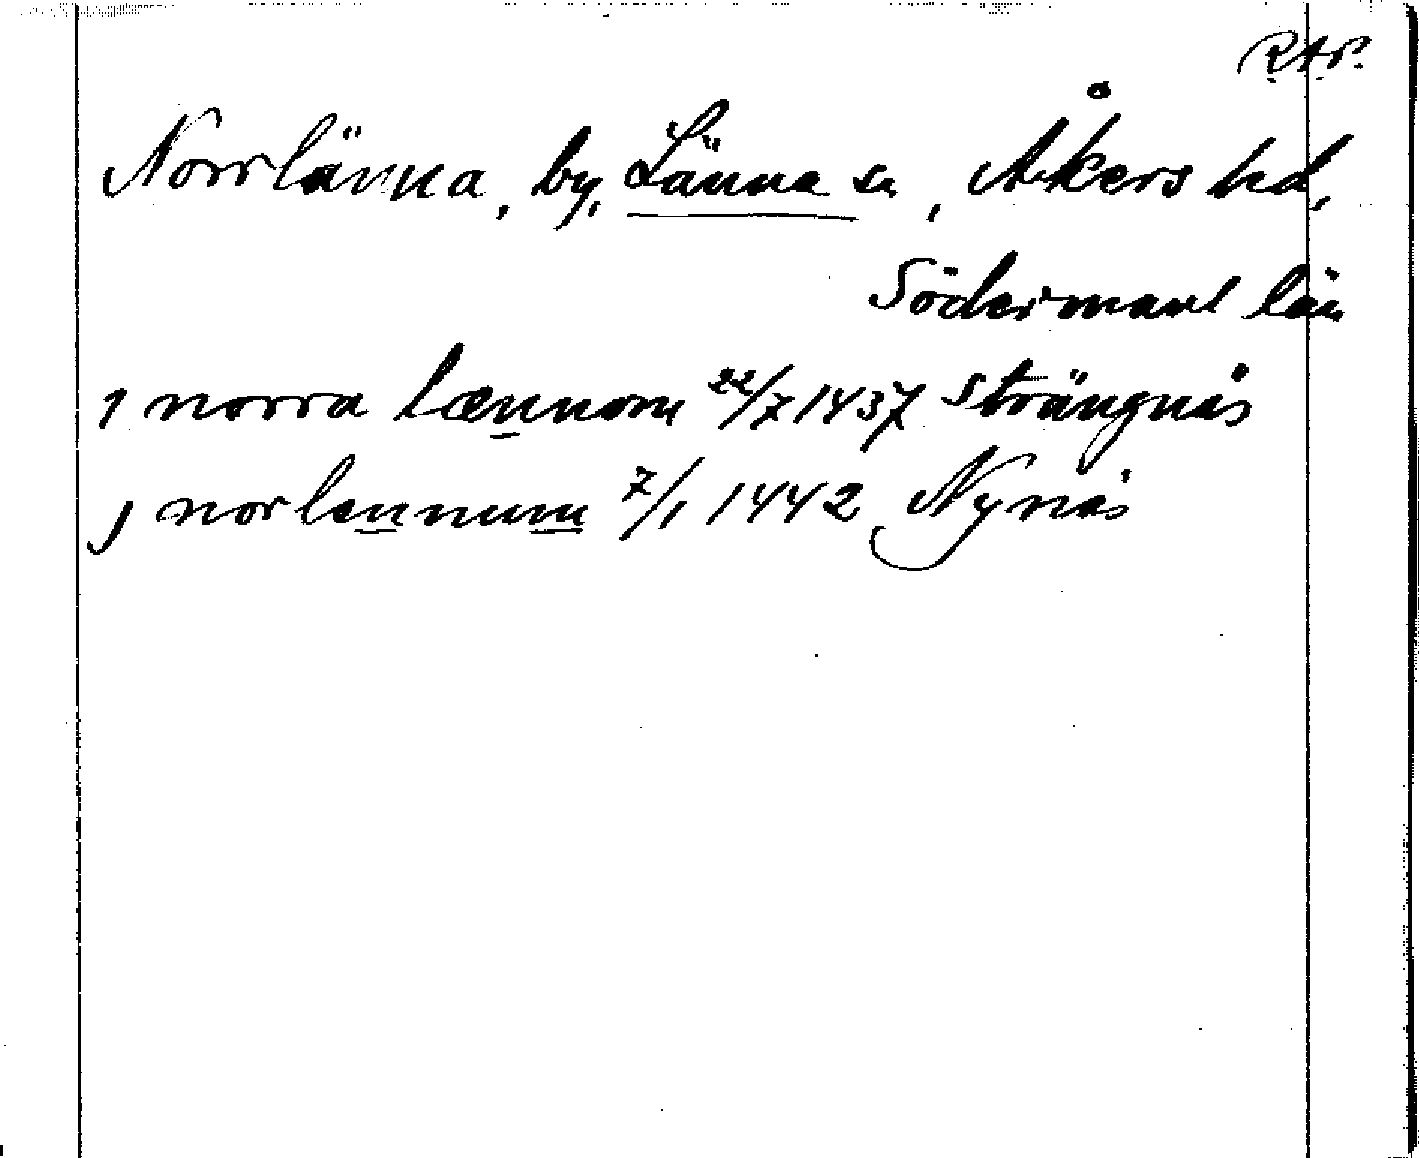 RAP.
Norrlänna, by, Länna sn, Åkers hd,
Södermanl län
j norra lænnom 22/7 1437 Strängnäs
j norlennum 7/1 1442 Nynäs